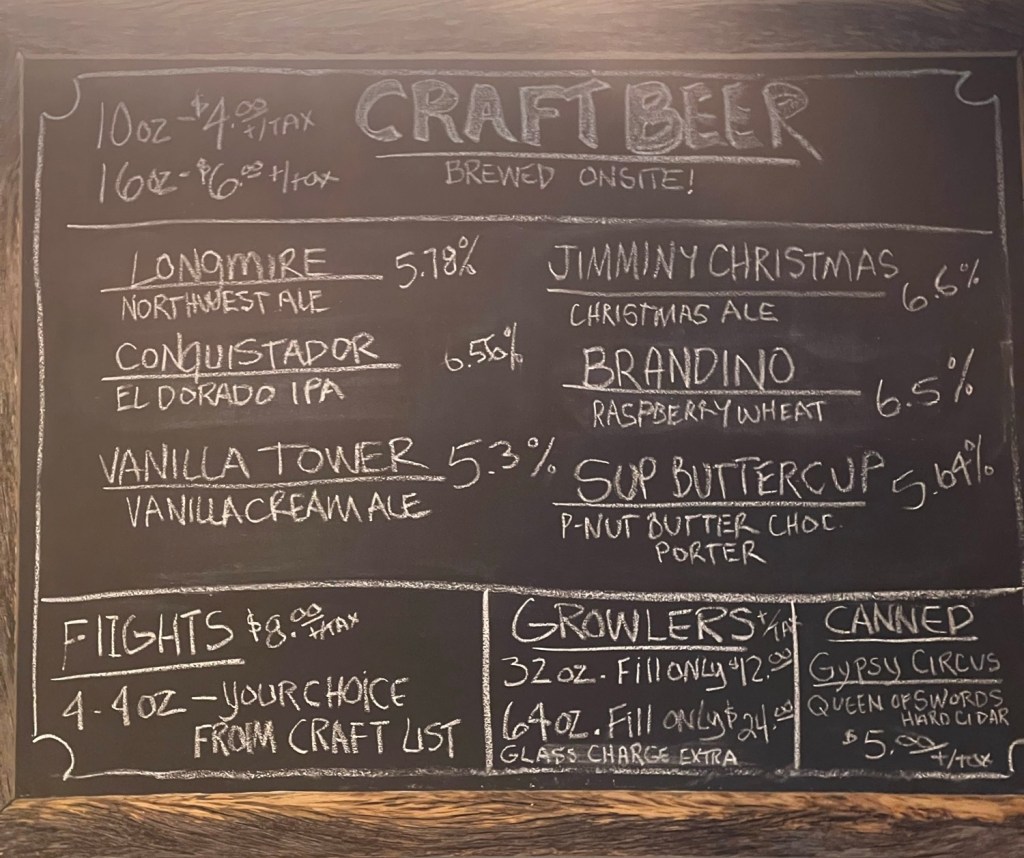 10oz - $4.00 +/TAX
16oz - $6.00 +/tax
CRAFT BEER
BREWED ONSITE!
LONGMIRE 5.78%
NORTHWEST ALE
CONQUISTADOR 6.55%
EL DORADO IPA
VANILLA TOWER 5.3%
VANILLA CREAM ALE
JIMMINY CHRISTMAS 6.6%
CHRISTMAS ALE
BRANDINO 6.5%
RASPBERRY WHEAT
SUP BUTTERCUP 5.64%
P-NUT BUTTER CHOC.
PORTER
FlIGHTS $8.00 +/TAX
4-4oz - YOUR CHOICE
FROM CRAFT LIST
GROWLERS +/TAX
32 oz. Fill ONLY $12.00
64oz. Fill ONLY $24.00
GLASS CHARGE EXTRA
CANNED
GYPSY CIRCUS
QUEEN OF SWORDS
HARD CIDAR
$5.00 +/tax